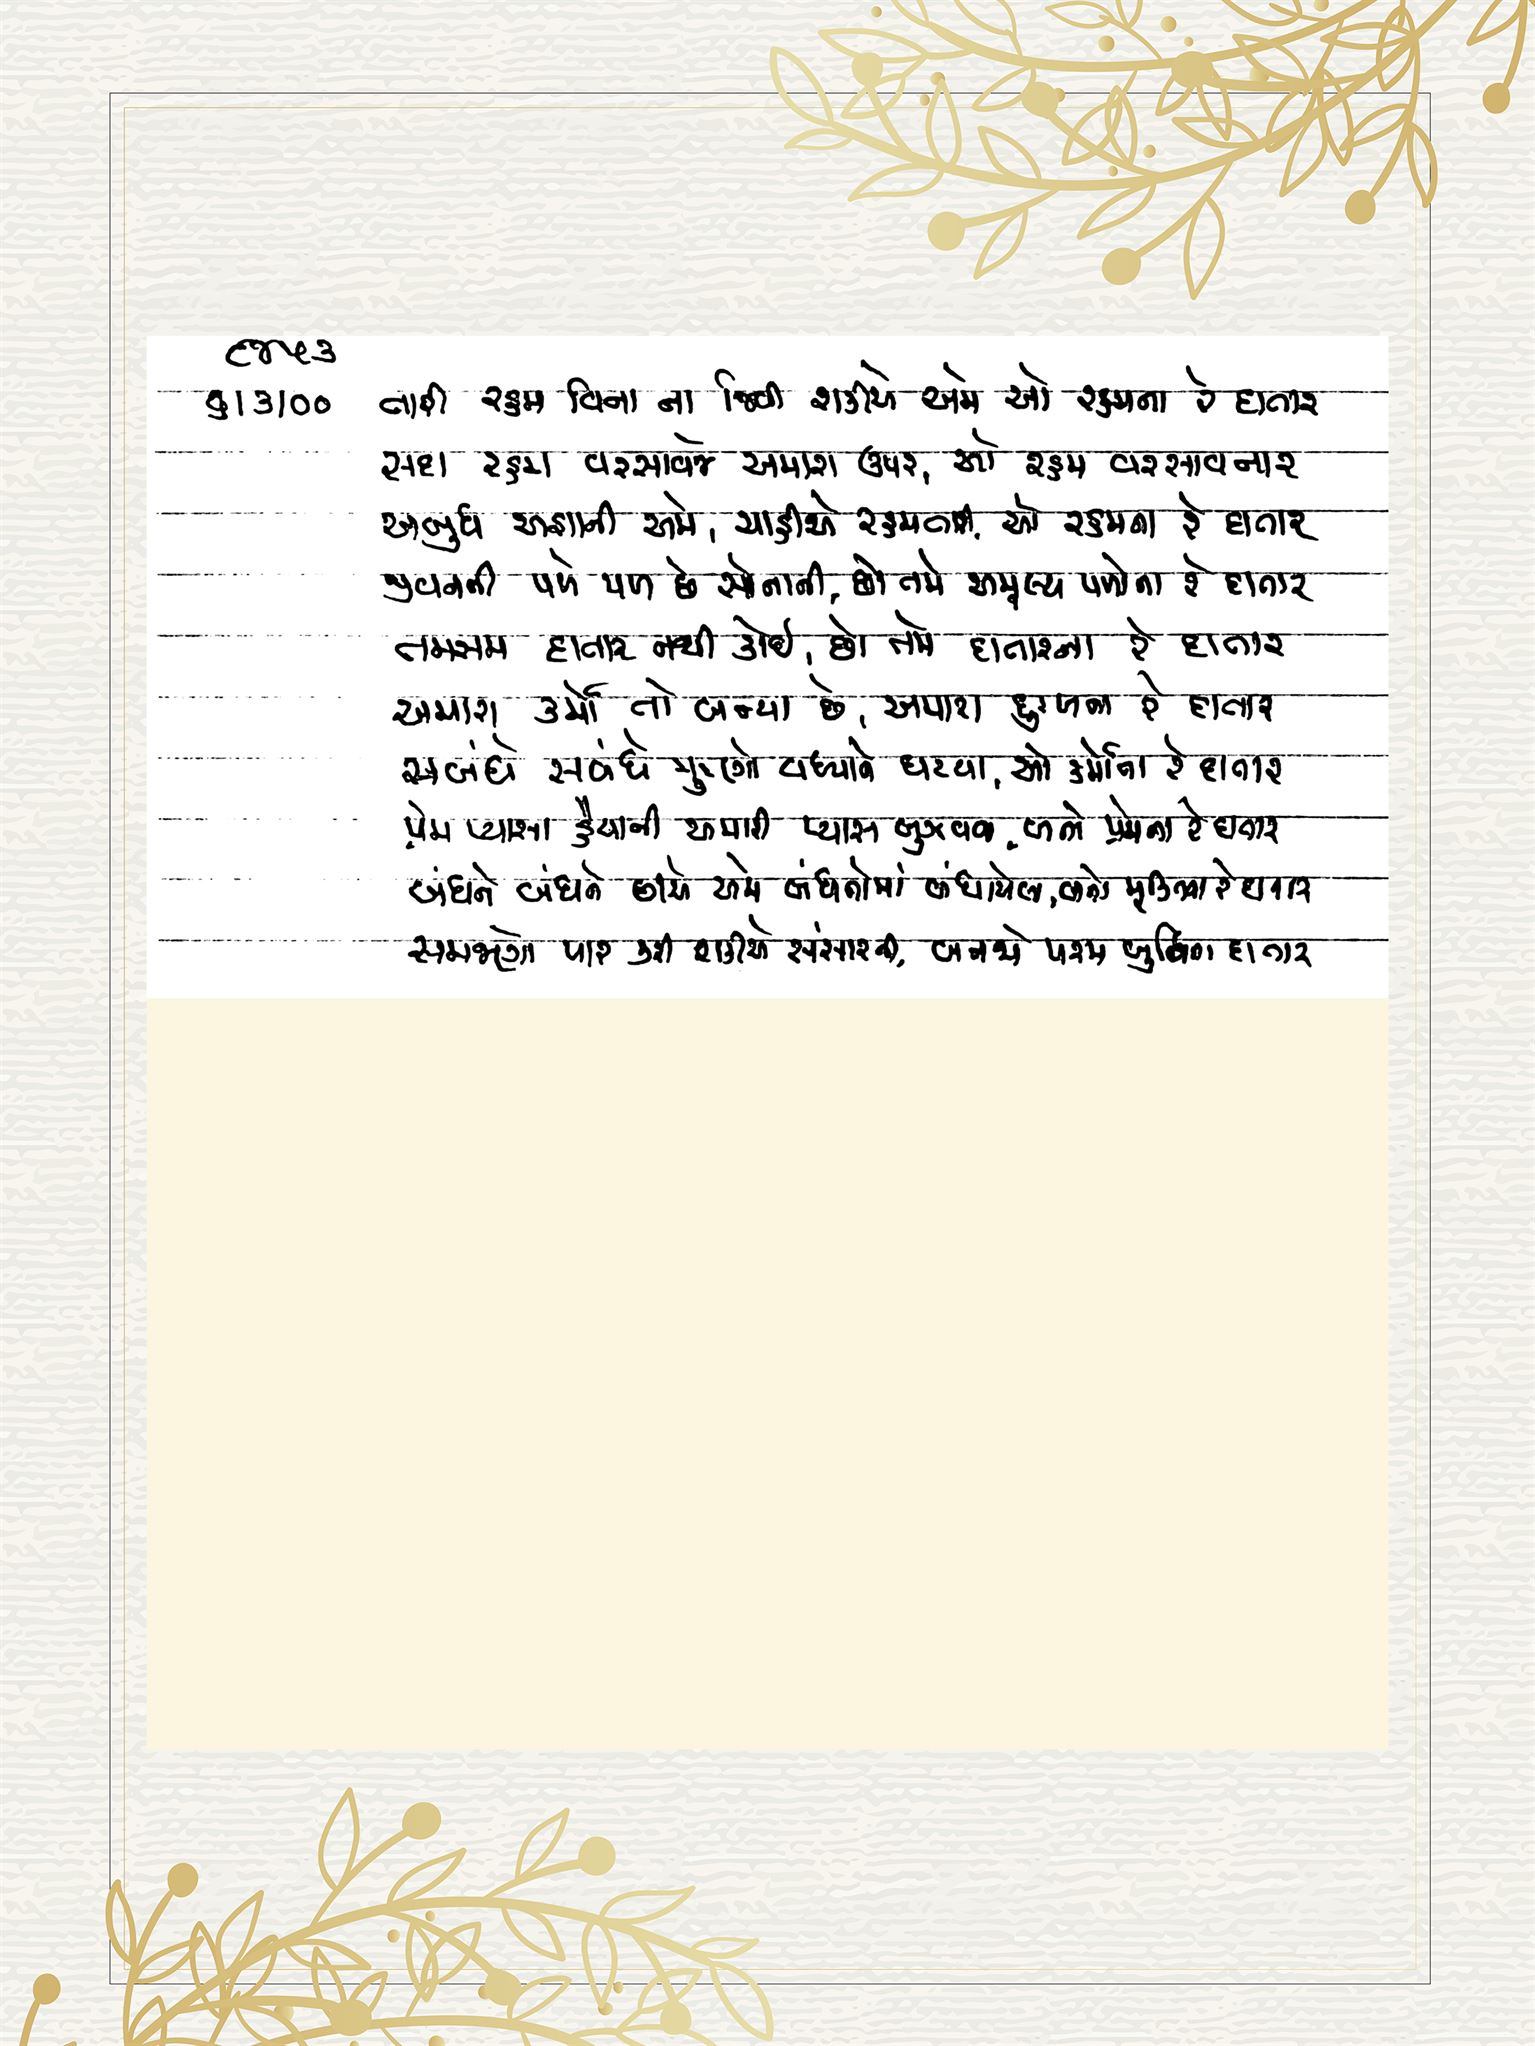 ૮૪૫૩
૬/૩/૦૦ તારી રહમ વિના ના જિવી શકીયે અમે ઓ રહમના રે દાતાર
સદા રહમ વરસાવજે અમારા ઉપર, ઓ રહમ વરસાવનાર
અબુધ અજ્ઞાની અમે, ચાહીએ રહમ તારી, ઓ રહમના રે દાતાર
જીવનની પળે પળ છે સોનાની, છો તમે અમૂલ્ય પળોના રે દાતાર
તમસમ દાતાર નથી કોઈ, છો તમે દાતારના રે દાતાર
અમારા કર્મો તો બન્યા છે, અમારા દુઃખના રે દાતાર
સબંધે સબંધે ગુણો વધ્યાને ઘટયા, ઓ કર્મોના રે દાતાર
પ્રેમ પ્યાસા હૈયાની અમારી પ્યાસ બુઝવવા, બનો પ્રેમના રે દાતાર
બંધને બંધને છીએ અમે બંધનોમાં બંધાયેલા, બનો મુક્તિના રે દાતાર
સમજણે પાર કરી શકીયે સંસારને, બનજો પરમ બુદ્ધિના દાતાર